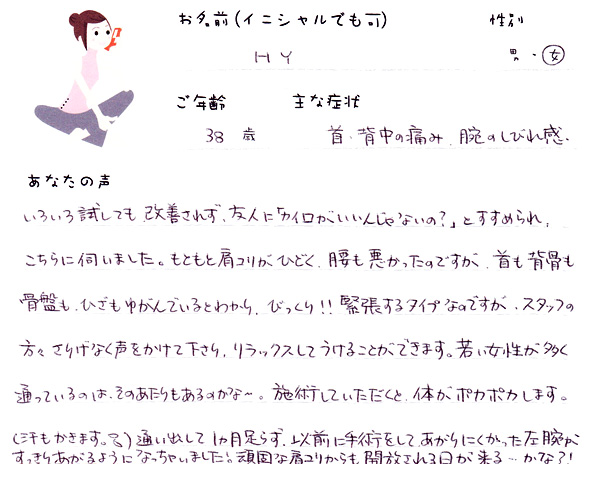 お名前(イニシャルでも可) 性別
HY 男・女
ご年齢 主な症状
38 歳 首、背中の痛み、腕のしびれ感、
あなたの声
いろいろ試しても改善されず、友人に「カイロがいいんじゃないの?」とすすめられ、
こちらに伺いました。もともと肩コリがひどく、腰も悪かったのですが、首も背骨も
骨盤も、ひざもゆがんでいるとわかり、びっくり!!緊張するタイプなのですが、スタッフの
方々さりげなく声をかけて下さり、リラックスしてうけることができます。若い女性が多く
通っているのは、そのあたりもあるのかな〜。施術していただくと、体がポカポカします。
(汗もかきます。) 通い出して1ヵ月足らず、以前に手術をして、あがりにくかった左腕が
すっきりあがるようになっちゃいました!頑固な肩コリからも開放される日が来る…かな?!